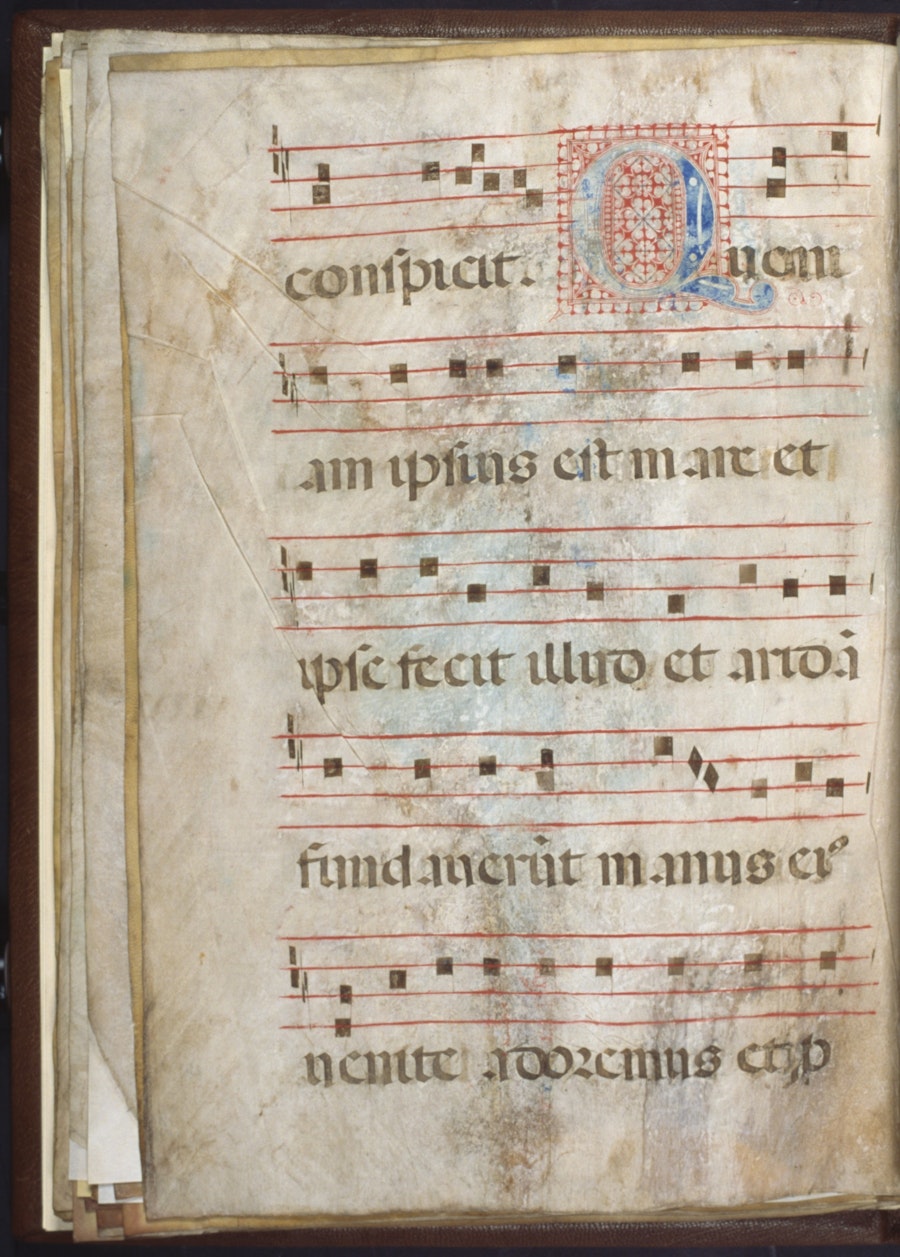 conspicit. Quoni
am ipsius est mare et
ipse fecit illud et aridā
fundauerūt manus eiꝰ
uenite adoremus et p